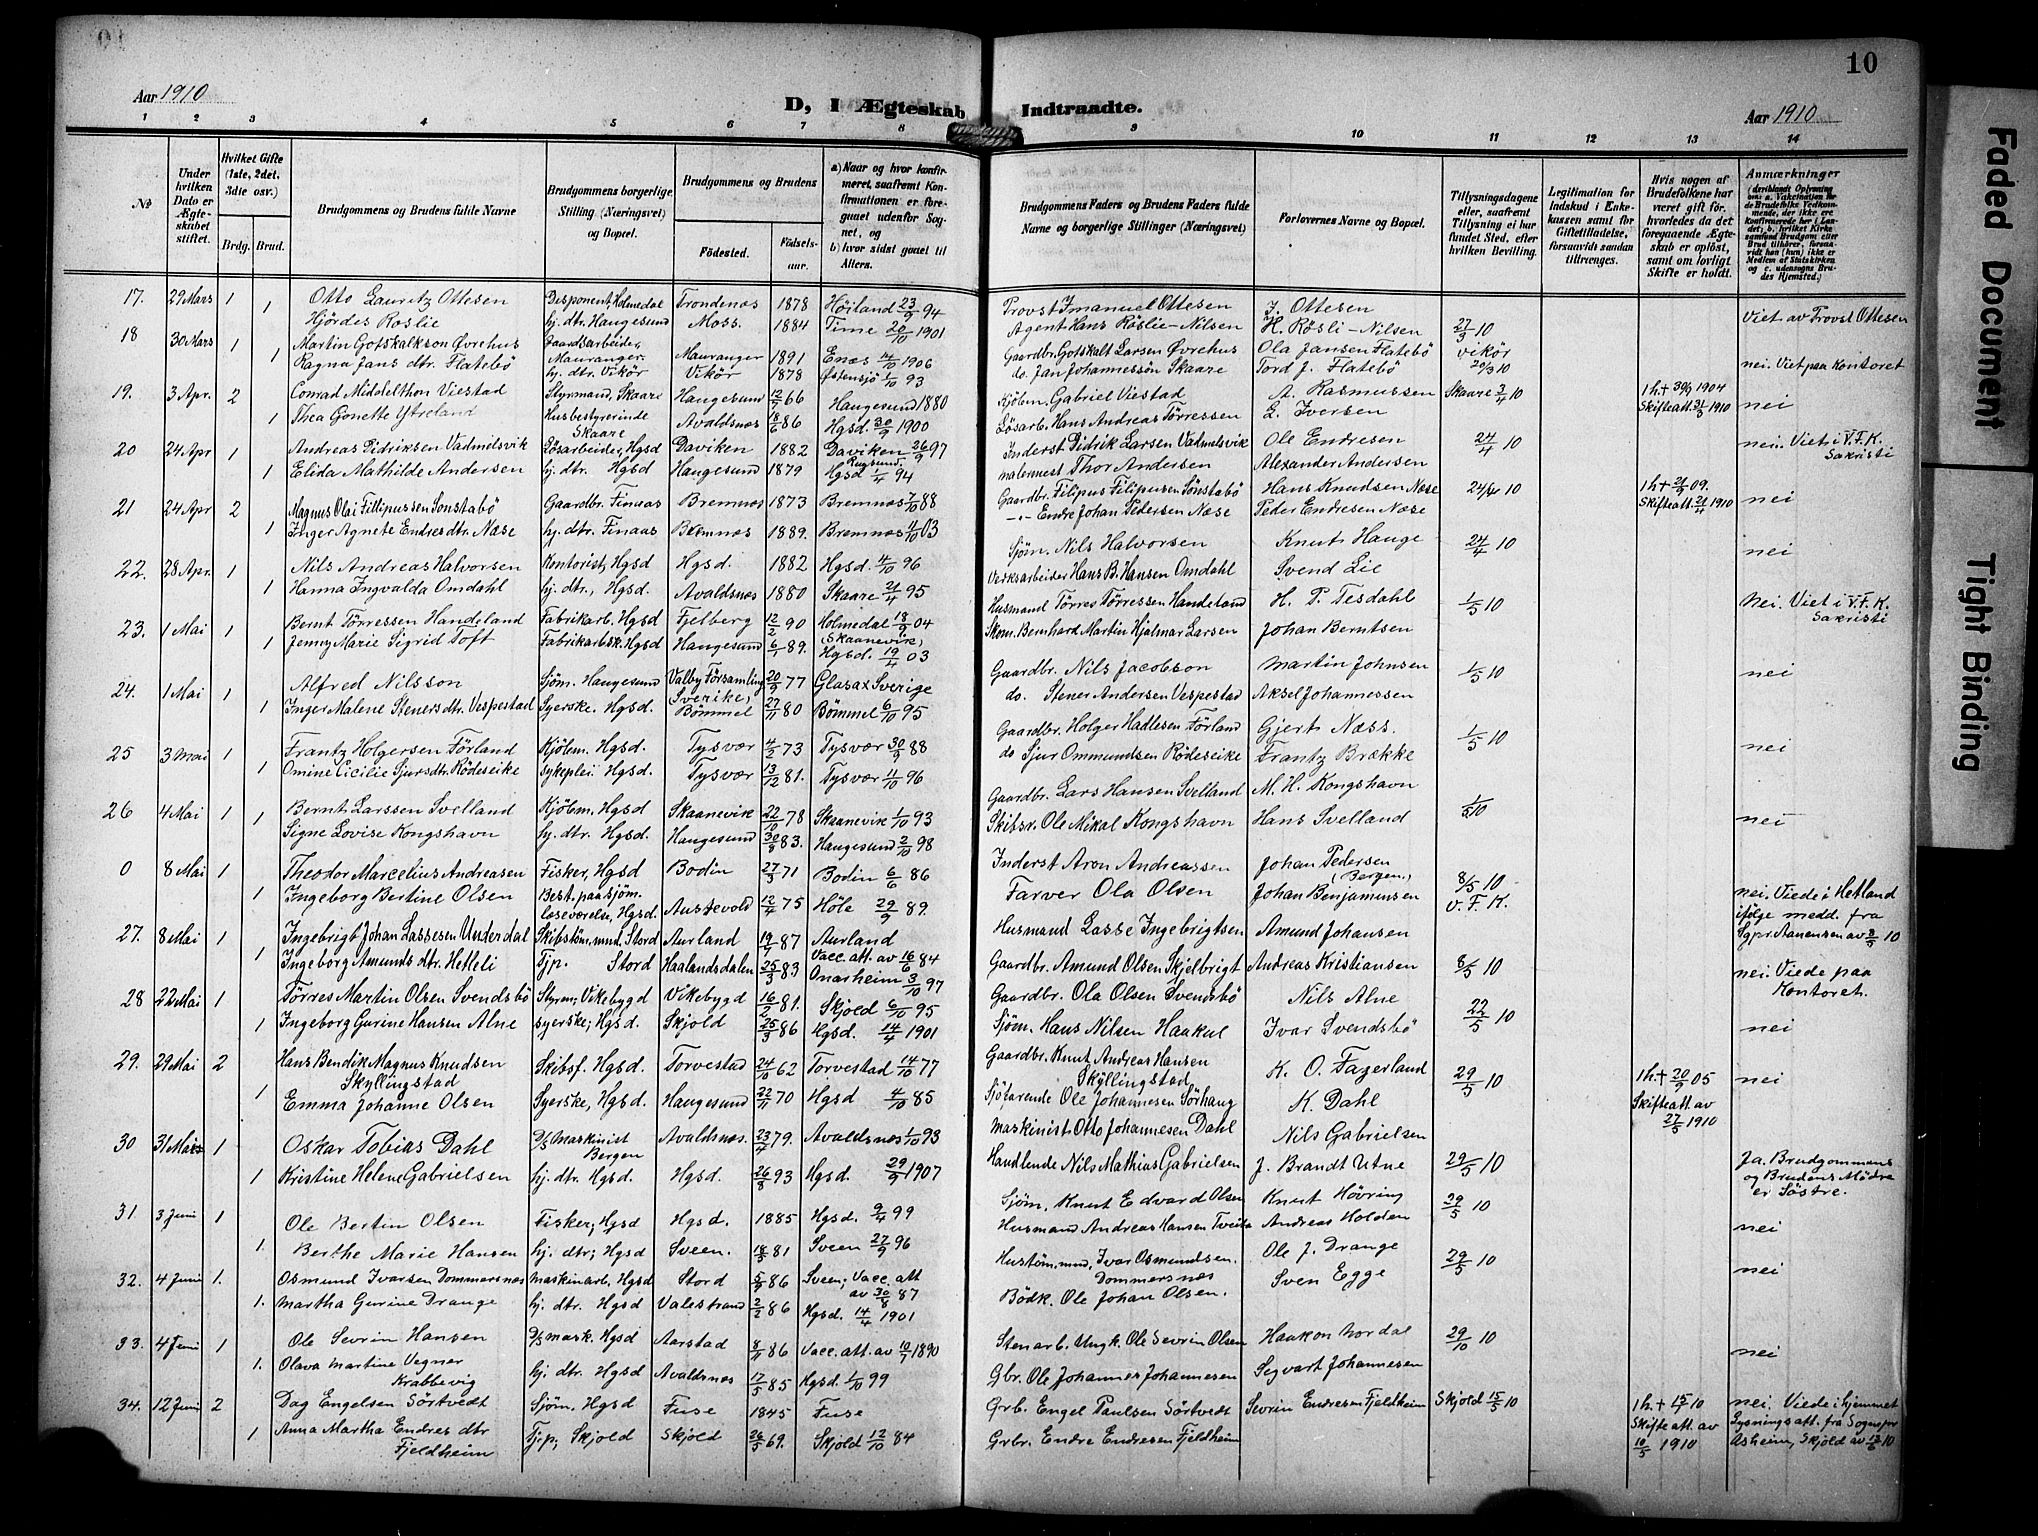 10
Aar 1910
D, I Ægteskab Indtraadte.
Aar 1910
1 2 3 4 5 6 7 8 9 10 11 12 13 14
No
Under hvilken Dato er Ægteskabet stiftet.
Hvilket Gifte (1ste, 2det, 3die osv.)
Brdg. Brud.
Brudgommens og Brudens fulde Navne
Brudgommens borgerlige Stilling (Næringsvei) og Bopæl.
Brudgommens og Brudens
Födested.
Födselsaar.
a) Naar og hvor konfirmeret, saafremt Konfirmationen er foregaaet udenfor Sognet, og
b) hvor sidst gaaet til Alters.
Brudgommens Faders og Brudens Faders fulde Navne og borgerlige Stillinger (Næringsvei)
Forlovernes Navne og Bopæl.
Tillysningsdagene eller, saafremt Tillysning ei har fundet Sted, efter hvilken Bevilling.
Legitimation for Indskud i Enkekassen samt for Giftetilladelse, forsaavidt saadan tiltrænges.
Hvis nogen af Brudefolkene har været gift för, hvorledes da det foregaaende Ægteskab er oplöst, samt om lovligt Skifte er holdt.
Anmærkninger
17. 29 Mars 1 Otto Lauritz Ottesen Desponent, Holmedal Trondenæs 1878 Höiland 23/9 94 Provst Imanuel Ottesen J. Ottesen Viet av Provst Ottesen
1 Hjördes Roslie hj. dtr. Haugesund Moss. 1884 Time 20/10 1901 Agent Hans Röslie-Nilsen H. Rösli-Nilsen 27/3 10
18 30 Mars 1 Martin Gotskalkson Øvrehus Gaardsarbeider, Mauranger Mauranger 1891 Enæs 14/10 1906 Gaardbr. Gotskalk Larsen Øvrehus Ola Jansen Flatebö Vikör
1 Ragna Jans dtr. Flatebö hj. dtr. Vikör Vikör 1878 Østensjö 1/10 93 do. Jan Johannessön Skaare Tord J. Flatebö 20/3 10 nei. Viet paa Kontoret
19. 3 Apr. 2 Conrad Middelthon Viestad Styrmand, Skaare Haugesund 12/7 66 Haugesund 1880 Kjöbm. Gabriel Viestad A. Rasmussen Skaare 3/4 10 1 h. + 30/9 1904
1 Thea Gonette Ytreland Husbestyrerinde Skaare Avaldsnes 18/6 86 Hgsd. 30/9 1900 Lösarb. Hans Andreas Törressen L. Iversen Skifteatt. 31/3 1910 nei
20 24 Apr 1 Andreas Didriksen Vadmelsvik Lösarbeider, Hgsd Daviken 1882 Daviken 26/9 97 Inderst Didrik Larsen Vadmelsvik Ole Endresen 24/4 10 nei. Viet i V.F.K. Sakristi
1 Elida Mathilde Andersen hj. dtr. Hgsd Haugesund 1879 Rugsund Hgsd 1/4 94 malermest Thor Andersen Alexander Andersen
21 24 Apr 2 Magnus Olai Fillipussen Sönstabö Gaardbr. Finaas Bremnæs 1873 Bremnæs 7/10 88 Gaardbr. Filipus Filipusen Sönstabö Hans Knudsen Næse 24/4 10 1 h. + 21/9 09.
1 Inger Agnete Endres dtr. Næse hj. dtr. Finaas Bremnæs 1889. Bremnæs 4/10 03 -"- Endre Johan Pedersen Næse Peder Endresen Næse Skifteatt. 21/4 1910 nei
22. 28 Apr. 1 Nils Andreas Halvorsen Kontorist, Hgsd Hgsd. 1882 Hgsd. 4/10 96 Sjöm. Nils Halvorsen Knut Hauge 24/4 10 nei
1 Hanna Ingvalda Omdahl hj. dtr., Hgsd. Avaldsnæs 1880 Skaare 21/4 95 Verksarbeider Hans B. Hansen Omdahl Svend Lie
23. 1 Mai 1 Bernt Törressen Handeland Fabrikarb. Hgsd Fjelberg 12/2 90 Holmedal 18/9 04 (Skaanevik) Husmand Törres Törressen Handeland H. P. Tesdahl 1/5 10 Nei. Viet i V.F.K. Sakristi
1 Jenny Marie Sigrid Toft Fabrikarbsk. Hgsd Haugesund 6/1 89. Hgsd. 19/4 03 Skom. Bernhard Martin Hjalmar Larsen Johan Berntsen
24. 1 Mai 1 Alfred Nilsson Sjöm. Haugesund Valby Församling Sverike, 20/9 77 Glasax Sverige Gaardbr. Nils Jacobson Martin Johnsen 1/5 10 nei
1 Inger Malene Steners dtr. Vespestad Syerske. Hgsd. Bömmel 27/11 80 Bömmel 6/10 95 do. Stener Andersen Vespestad Aksel Johannessen
25 3 Mai 1 Frantz Holgersen Förland Kjöbm. Hgsd. Tysvær 4/2 73 Tysvær 30/9 88 Gaardbr. Holger Hadlesen Förland Gjert Næss. 1/5 10 nei
1 Omine Cicilie Sjursdtr. Rödeseike sykeplei Hgsd. Tysvær 13/12 81. Tysvær 11/10 96 do Sjur Ommundsen Rödeseike Frantz Brække
26 4 Mai 1 Bernt Larssen Svelland Kjöbm. Hgsd Skaanevik 22/10 78 Skaanevik 1/10 93 Gaardbr. Lars Hansen Svelland M. H. Kongshavn 1/5 10
1 Signe Lovise Kongshavn hj. dtr. Hgsd. Haugesund 30/9 83. Haugesund 2/10 98 Skibsr. Ole Mikal Kongshavn Hans Svelland nei
0 8 Mai 1 Theodor Marcelius Andreasen Fisker, Hgsd Bodin 27/3 71 Bodin 6/6 86 Inderst Aron Andreassen Johan Pedersen (Bergen) 8/5 10
1 Ingeborg Bertine Olsen Best. paa sjöm. læseværelse, Hgsd. Austevold 12/4 75 Höle 29/9 89. Farver Ola Olsen Johan Benjaminsen V. F. K. nei. Viede i Hetland ifölge medd. fra Sgpr. Aanensen av 8/5 10
27. 8 Mai 1 Ingebrigt Johan Lassesen Underdal Skibstöm.mnd, Stord Aurland 19/7 87 Aurland Vacc. att. av 16/6 84 Husmand Lasse Ingebrigtsen Amund Johansen
1 Ingeborg Amunds dtr. Hetleli Tjp. Stord Haalandsdalen 25/3 83 Onarheim 3/10 97 Gaardbr. Amund Olsen Skjelbrigt Andreas Kristiansen 8/5 10 nei. Viede paa Kontoret.
28 22 Mai 1 Törres Martin Olsen Svendsbö Styrm, Vikebygd Vikebygd 16/2 81. Skjold 6/10 95 Gaardbr. Ola Olsen Svendsbö Nils Alne 22/5 10
1 Ingeborg Gurine Hansen Alne syerske, Hgsd. Skjold 25/3 86 Hgsd. 14/4 1901 Sjöm. Hans Nilsen Haakul Ivar Svendsbö nei
29. 29 Mai 2 Hans Bendik Magnus Knudsen Skyllingstad Skibsf. Hgsd. Torvestad 24/10 62 Torvestad 14/10 77 Gaardbr. Knut Andreas Hansen Skyllingstad K. O. Fagerland 29/5 10 1 h. + 20/9 05 nei
1 Emma Johanne Olsen Syerske, Hgsd. Haugesund 22/11 70 Hgsd 4/10 85 Sjöfarende Ole Johannesen Sörhaug K. Dahl Skifteatt. av 27/5 1910
30 31 Mai 1 Oskar Tobias Dahl D/s maskinist Bergen Avaldsnæs. 23/4 79. Avaldsnæs 1/10 93 Maskinist Otto Johannesen Dahl Nils Gabrielsen
1 Kristine Helene Gabrielsen hj. dtr. Hgsd. Hgsd. 26/8 93 Hgsd. 29/9 1907 Handlende Nils Mathias Gabrielsen J. Brandt Utne 29/5 10 Ja. Brudgommens og Brudens Mödre er Söstre.
31. 3 Juni 1 Ole Bertin Olsen Fisker, Hgsd Hgsd. 1885 Hgsd. 9/4 99 Sjöm. Knut Edvard Olsen Knut Hövring 29/5 10
1. Berthe Marie Hansen hj. dtr; Hgsd Sveen. 18/5 81 Sveen 27/9 96 Husmand Andreas Hansen Tveita Andreas Holden nei
32. 4 Juni 1. Osmund Ivarsen Dommersnæs maskinarb. Hgsd Stord 5/9 86 Sveen; Vacc. att av 30/8 87 Hustöm.mnd, Ivar Osmundsen. Dommersnæs Ole J. Drange 29/5 10 nei
1. Martha Gurine Drange hj. dtr. Hgsd Valestrand 2/2 86 Hgsd. 14/4 1901 Bödk. Ole Johan Olsen. Sven Egge
33. 4 Juni 1 Ole Sevrin Hansen D/s mask. Hgsd Aarstad 8/11 86 Vacc. att. av 10/7 1890 Stenarb. Ungk. Ole Sevrin Olsen Haakon Nordal 29/10 10
1. Olava Martine Vegner Krabbevig hj. dtr. Hgsd Avaldsnæs 17/5 85 Hgsd. 1/10 99 Gbr. Ole Johannes Johannesen Segvart Johannesen nei
34. 12 Juni 2 Dag Engelsen Sörtvedt Sjöm. Hgsd Fuse 1845 Fuse Grb. Engel Paulsen Sörtvedt Sevrin Endresen Fjeldheim Skjold 15/5 10 1 h. + 15/1 10 nei. Viede i hjemmet
1 Anna Martha Endres dtr Fjeldheim Tjp; Skjold Skjold 26/5 69. Skjold 12/10 84 Grbr. Endre Endresen Fjeldheim Skifteatt. av 10/5 1910 Lysningsatt. fra Sognepr Asheim, Skjold av 12/6 10
Faded Document
Tight Binding